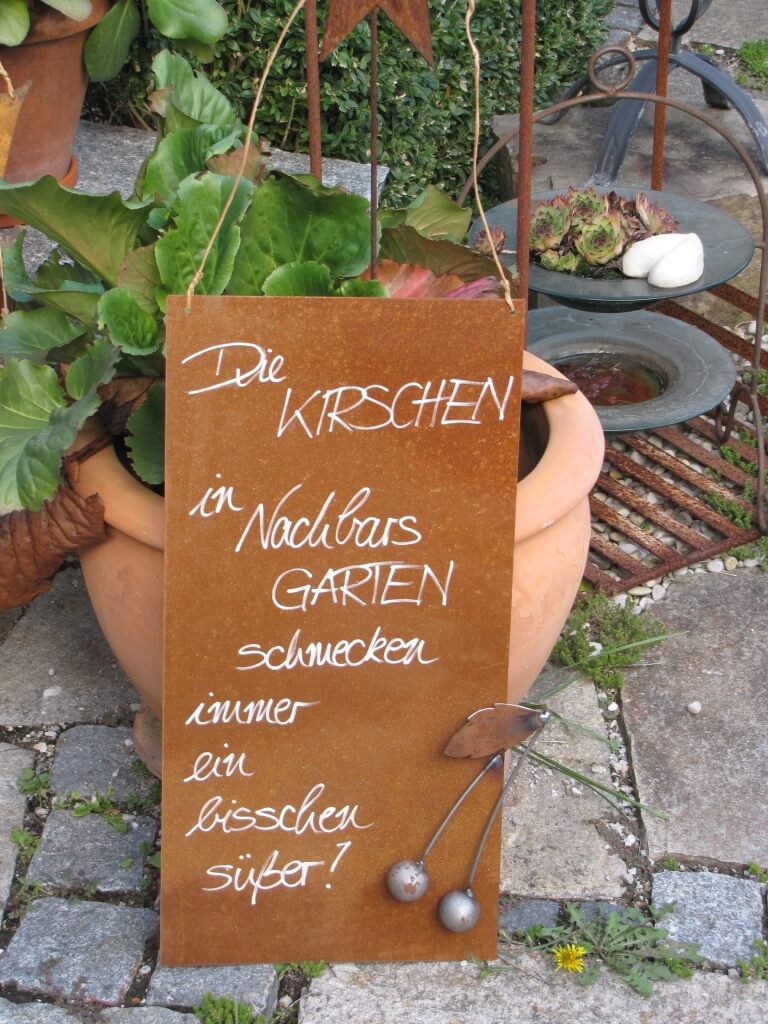 Die
KIRSCHEN
in Nachbars
GARTEN
schmecken
immer
ein
bisschen
süßer!